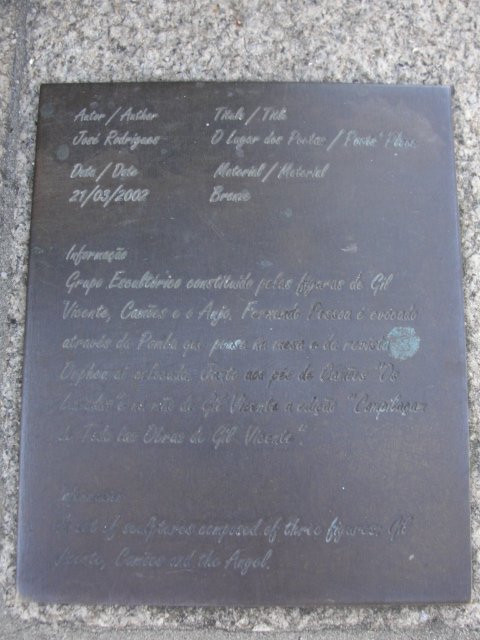 Autor / Author Título / Title
José Rodrigues O Lugar dos Poetas / Poets' Place
Data / Date Material / Material
21/03/2002 Bronze
Informação
Grupo Escultórico constituído pelas figuras de Gil
Vicente, Camões e o Anjo. Fernando Pessoa é evocado
através da Pomba que pousa na mesa e da revista
Orpheu aí colocada. Junto aos pés de Camões "Os
Lusíadas" e na mão de Gil Vicente a edição "Compilaçam
de Todalas Obras de Gil Vicente".
A set of sculptures composed of three figures: Gil
Vicente, Camões and the Angel.